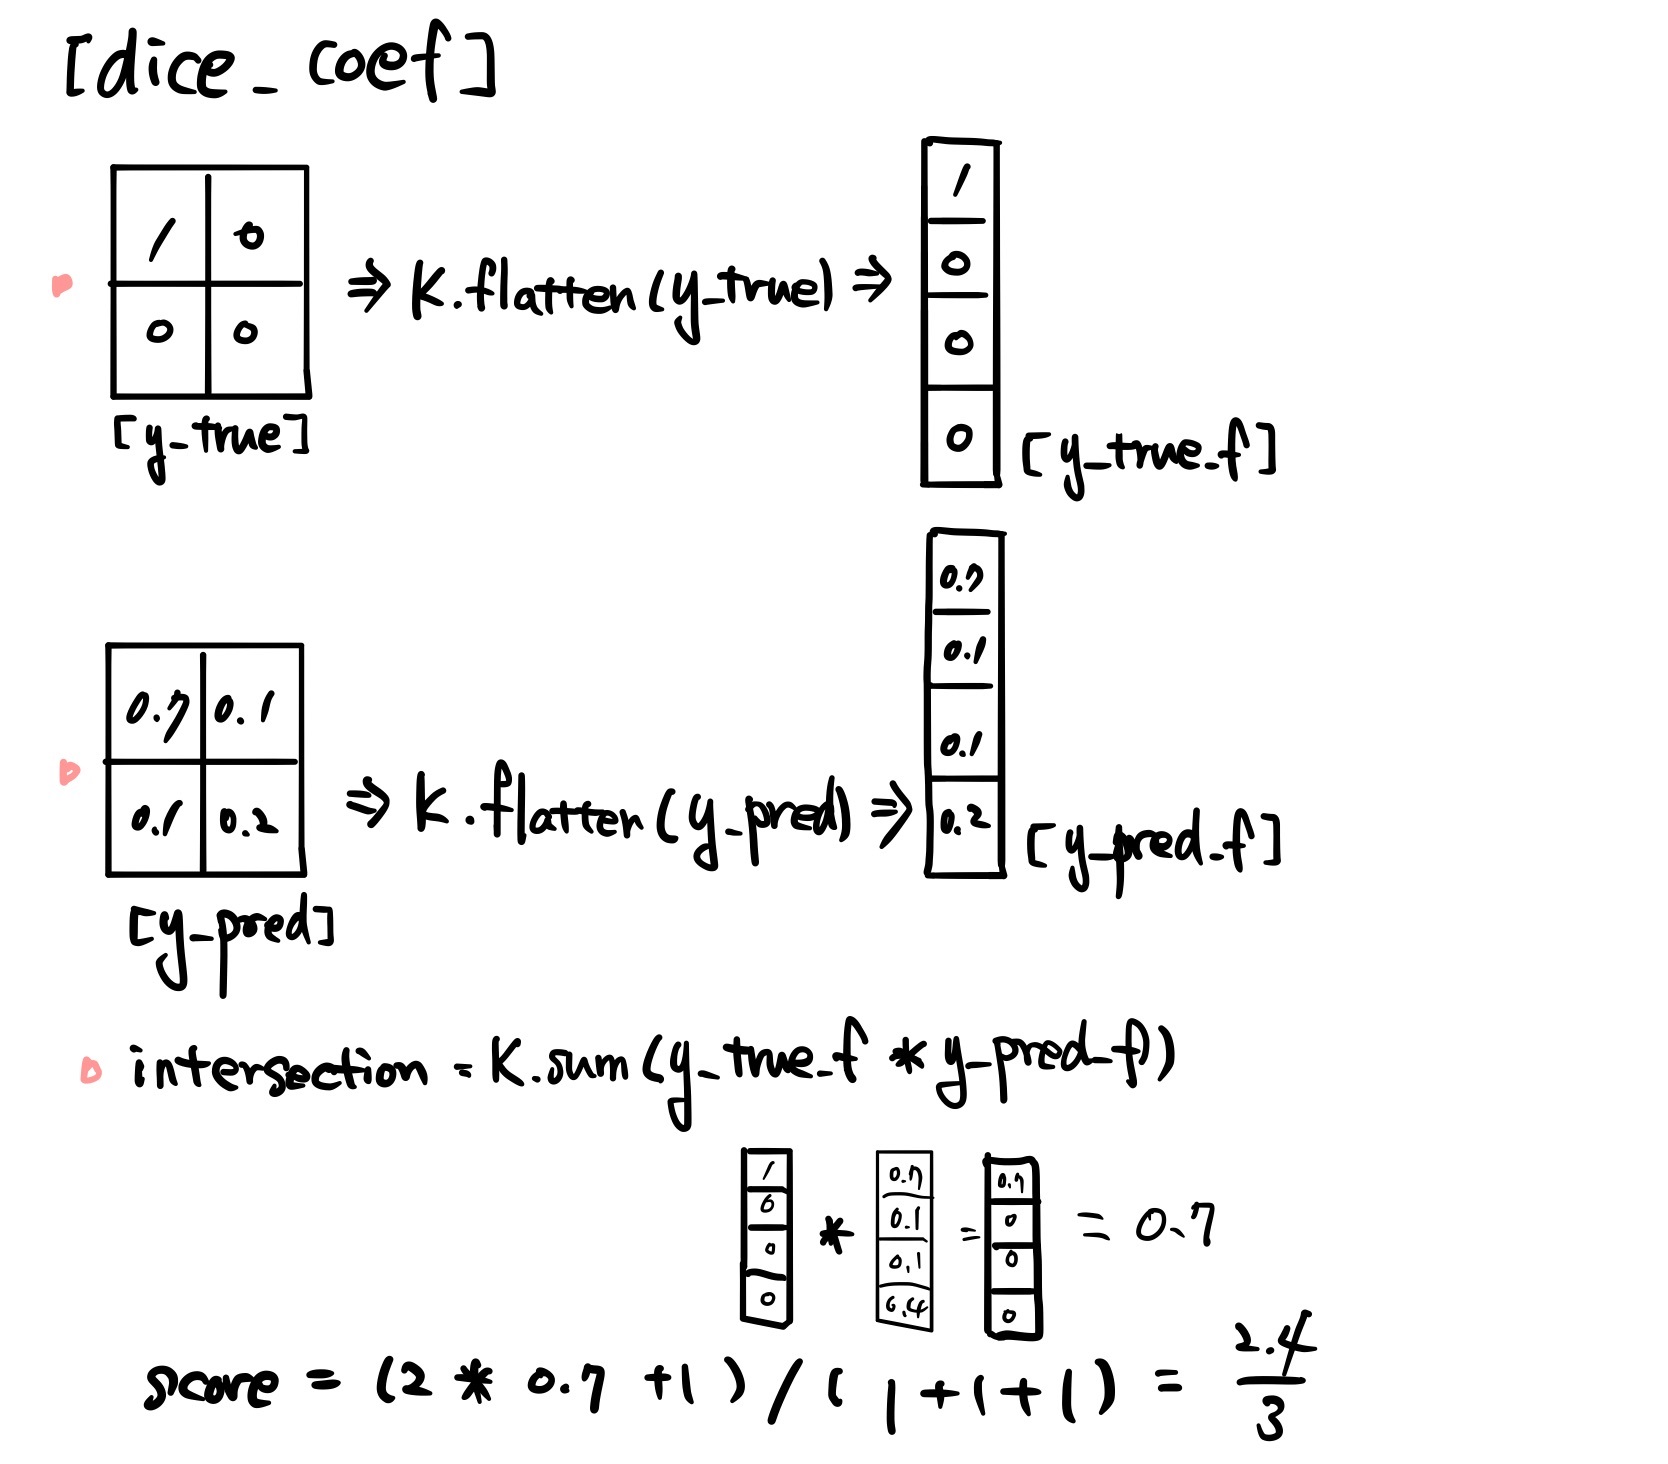 [dice_coef]
1 0
0 0
[y_true]
⇒ K.flatten(y_true) ⇒
1
0
0
0
[y_true_f]
0.7 0.1
0.1 0.2
[y_pred]
⇒ K.flatten(y_pred) ⇒
0.7
0.1
0.1
0.2
[y_pred_f]
intersection = K.sum(y_true_f * y_pred_f))
1 0.7 0.7
0 0.1 0
* = = 0.7
0 0.1 0
0 0.4 0
score = (2 * 0.7 +1) / (1+1+1) = 2.4
3